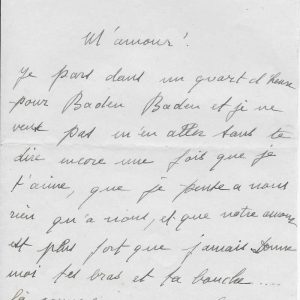 M'amour!
Je pars dans un quart d'heure
pour Baden Baden et je ne
veux pas m'en aller sans te
dire encore une fois que je
t'aime, que je pense a nous
rien qu'a nous, et que notre amour
est plus fort que jamais Donne
moi tes bras et ta bouche....